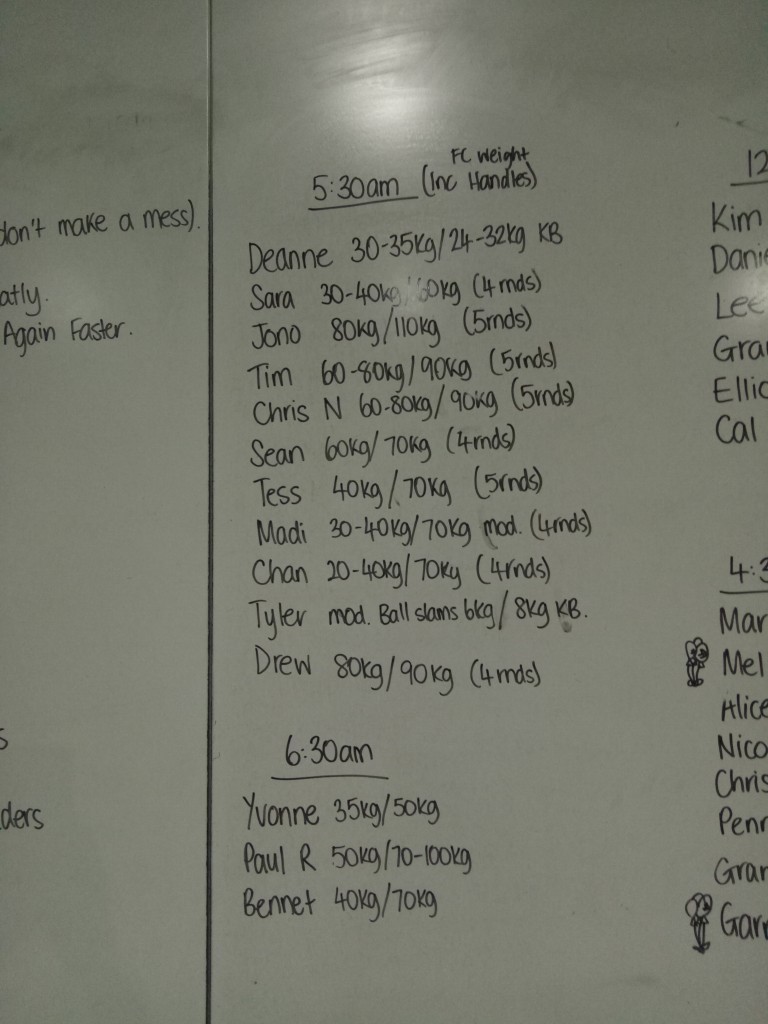 don't make a mess).
atly.
Again Faster.
s
ders
FC Weight
5:30am (Inc Handles)
Deanne 30-35kg/24-32kg KB
Sara 30-40kg/60kg (4rnds)
Jono 80kg/110kg (5rnds)
Tim 60-80kg/90kg (5rnds)
Chris N 60-80kg/90kg (5rnds)
Sean 60kg/70kg (4rnds)
Tess 40kg/70kg (5rnds)
Madi 30-40kg/70kg mod. (4rnds)
Chan 20-40kg/70kg (4rnds)
Tyler mod. Ball slams 6kg/8kg KB.
Drew 80kg/90kg (4rnds)
6:30am
Yvonne 35kg/50kg
Paul R 50kg/70-100kg
Bennet 40kg/70kg
12
Kim
Danie
Lee
Gra
Ellio
Cal
4:3
Mar
Mel
Alice
Nico
Chris
Penn
Gran
Garr